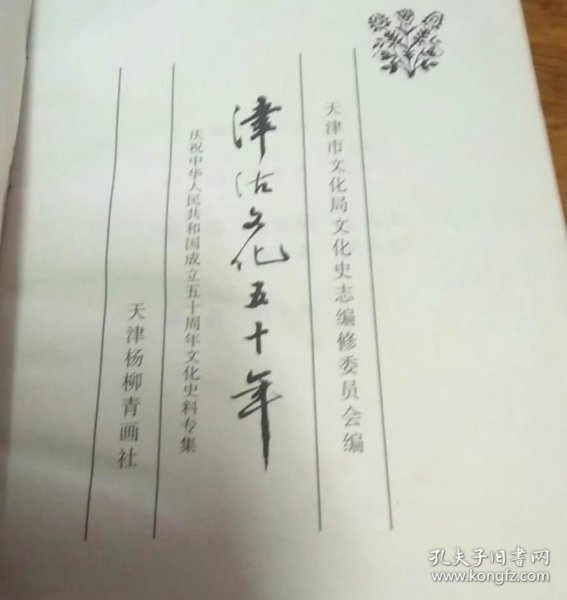 天津市文化局文化史志编修委员会编
津沽文化五十年
庆祝中华人民共和国成立五十周年文化史料专集
天津杨柳青画社
孔夫子旧书网
www.kongfz.com